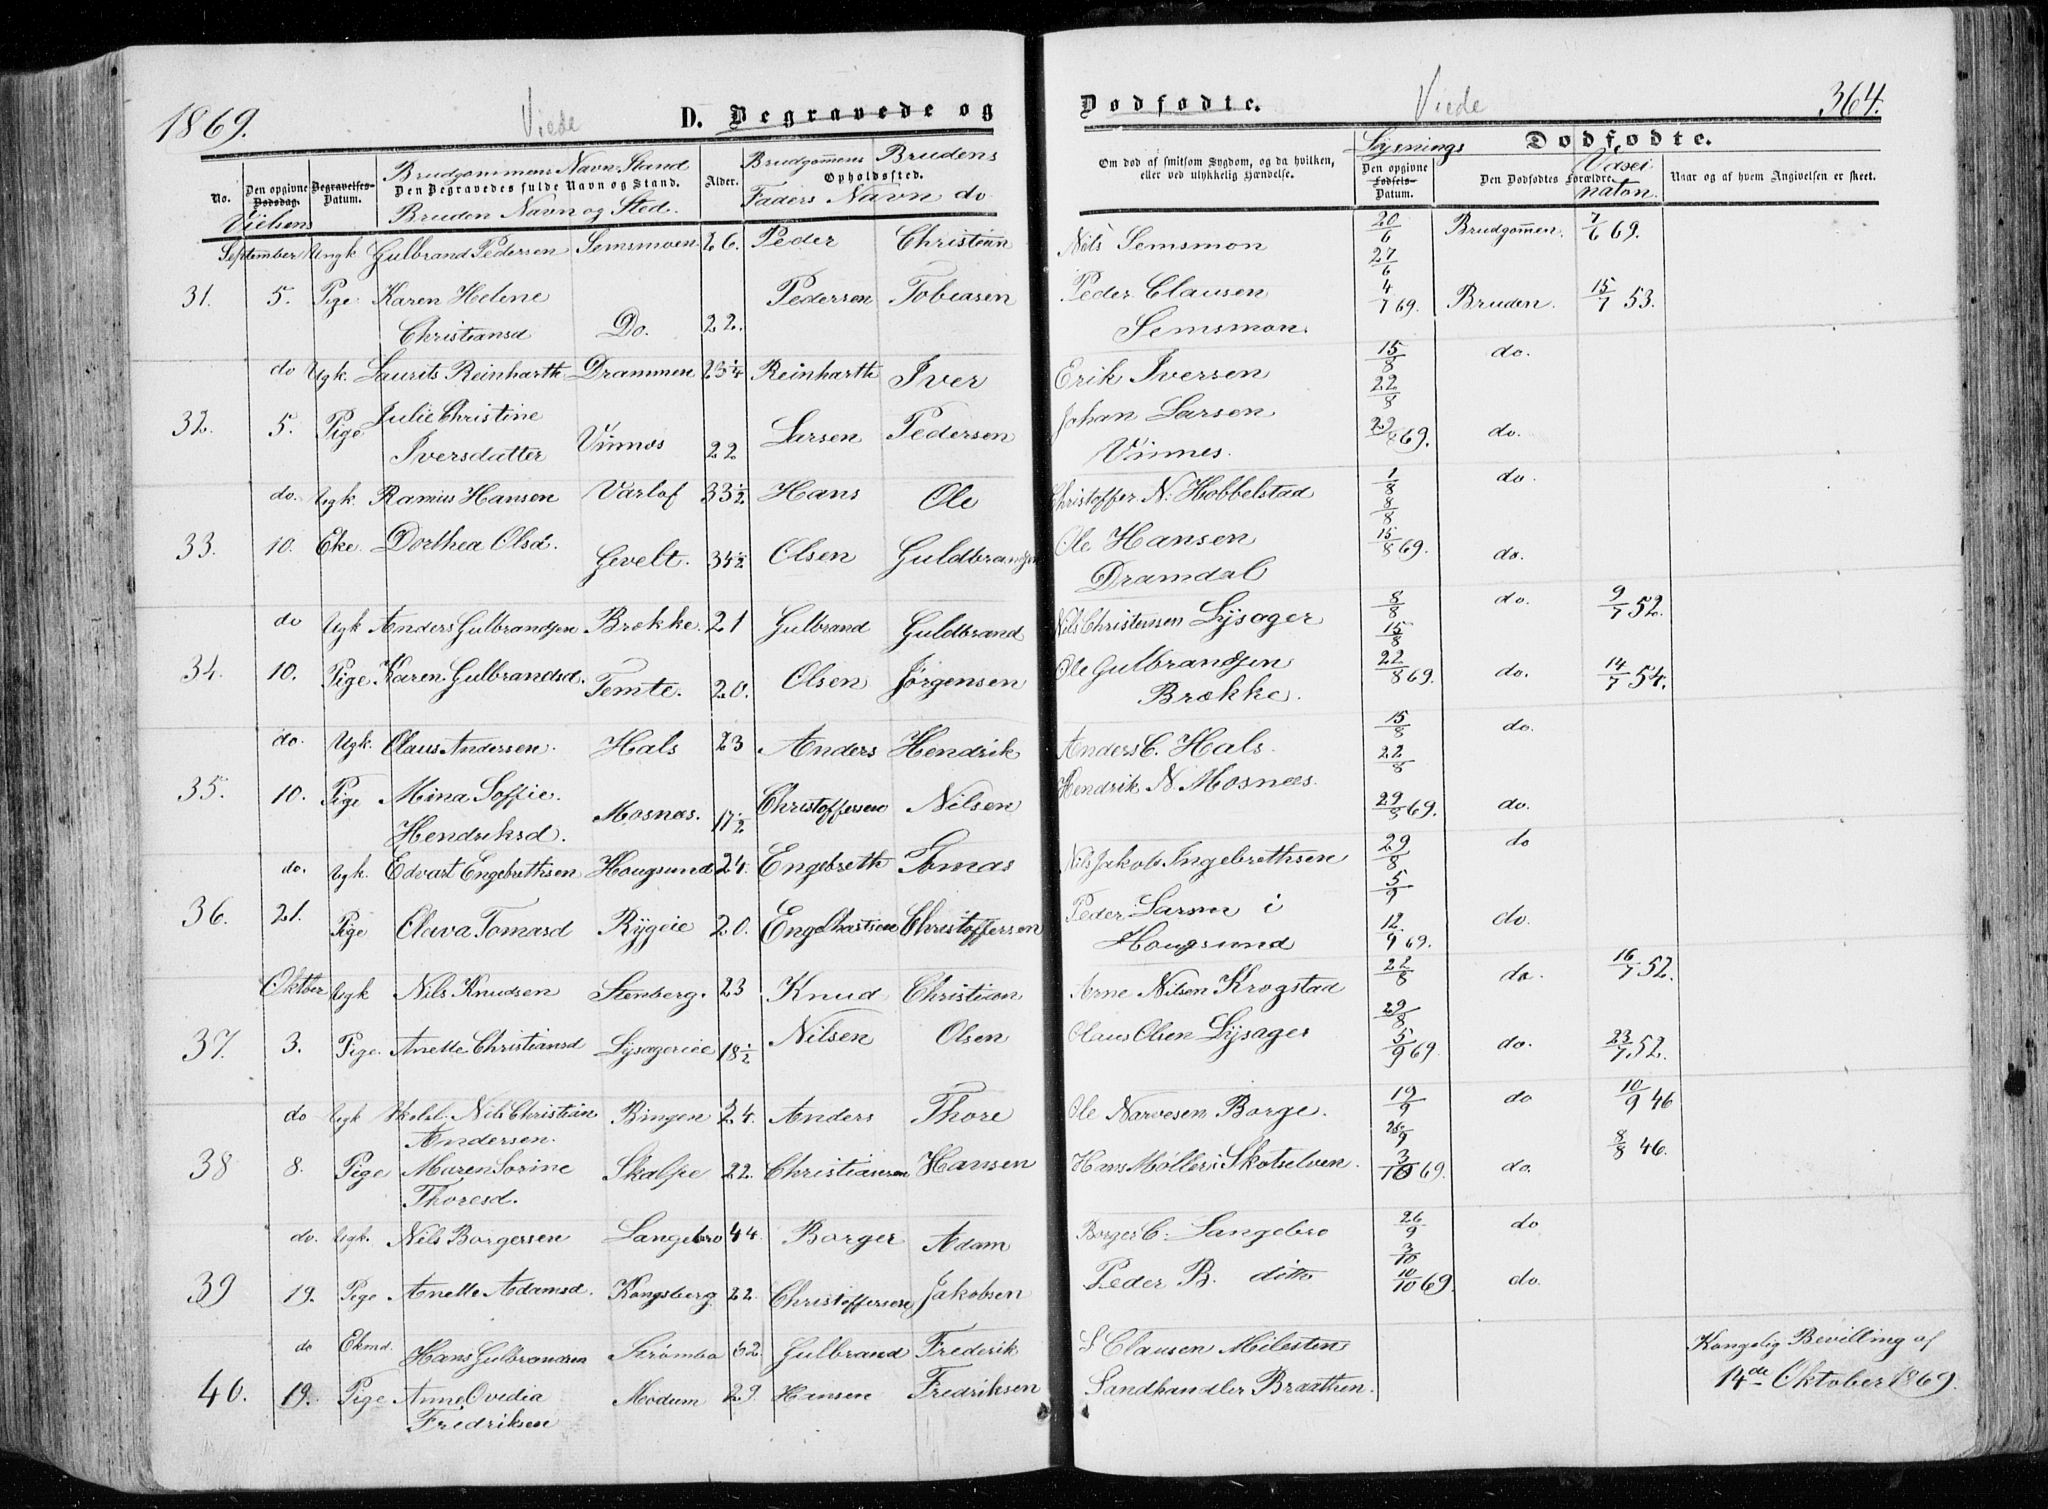 1869. Viede D. Begravede og
No. Den opgivne Dødsdag. Vielsens Begravelses-Datum. Brudgommens Navn Stand Alder. Brudgommens Brudens
Den Begravedes fulde Navn og Stand. Opholdssted.
Bruden Navn og Sted. Faders Navn do
September Ungk Gulbrand Pedersen Semsmoen 26. Peder Christian
31. 5. Pige Karen Helene Pedersen Tobiasen
Christiansd Do. 22.
do Ugk. Laurits Reinharth Drammen 23¼ Reinharth Iver
32. 5. Pige Julie Christine Larsen Pedersen
Iversdatter Vinnes 22
do. Ugk. Ramus Hansen Varlof 33½ Hans Ole
33. 10. Eke. Dorthea Olsd. Gevelt. 34½ Olsen Guldbrandsen
do Ugk Anders Gulbrandsen Brække. 21 Gulbrand Guldbrand
34. 10. Pige Karen Gulbrandsd. Temte. 20. Olsen Jørgensen
do. Ugk. Olaus Andersen. Hals 23 Anders Hendrik
35. 10. Pige Mina Soffie. Christoffersen Nilsen
Hendriksd. Mosnæs. 17½
do. Ugk. Edvart Engebrethsen Hougsund 24. Engebreth Tomas
36. 21. Pige Olava Tomasd Rygeie 20. Engelbrethsen Christoffersen
Oktber Ugk Nils Knudsen Stenberg. 23 Knud Christian
37. 3. Pige. Anette Christiansd Lysagereie 18½ Nilsen Olsen
do Ugk Nils Christian Bingen 24. Anders Thore
Andersen.
38 8. Pige Maren Sorine Skalfie 22. Christiansen Hansen
Thoresd.
do. Ugk. Nils Borgersen Langebro 44. Borger Adam
39 19. Pige Anette Adamsd. Kongsberg. 22. Christoffersen Jakobsen
do Ekmd. Hans Gulbrandsen Strømbo 62. Gulbrand Frederik
40. 19. Pige Anne Ovidia Modum 29. Hansen Fredriksen
Fredriksen
Dødfødte. Viede 364.
Om død af smitsom Sygdom, og da hvilken, eller ved ulykkelig Hændelse. Lysnings Dødfødte.
Den opgivne Fødsels-Datum. Den Dødfødtes Forældre. Vacsination. Naar og af hvem Angivelsen er skeet.
Nils Semsmon 20/6 Brudgommen. 7/6 69.
27/6
Peder Clausen 4/7 69. Bruden. 15/7 53.
Semsmon.
Erik Iversen 15/8 do.
22/8
Johan Larsen 29/8 69. do.
Vinnes.
Christoffer N. Hobbelstad 1/8 do.
8/8
Ole Hansen 15/8 69. do.
Dramdal
Nils Christensen Lysager 8/8 do. 9/7 52.
15/8
Ole Gulbrandsen 22/8 69. do. 14/7 54.
Brække.
Anders C. Hals. 15/8 do.
22/8
Hendrik N. Mosnæs. 29/8 69. do.
Nils Jakob Ingebrethsen 29/8 do
5/9
Peder Larsen i 12/9 69. do.
Hougsund
Arne Nilsen Krogstad 22/8 do. 16/7 52.
29/8
Olaus Olsen Lysager 5/9 69. do. 23/7 52.
Ole Narvesen Borge. 19/9 do 10/9 46
26/9
Hans Möller i Skotselven. 3/10 69. do. 8/8 46.
Borger C. Langebro 26/9 do
3/10
Peder B. ditto 10/10 69. do.
Clausen Milesten Kongelig Bevilling af
Sandhandler Braathen. 14de Oktober 1869.